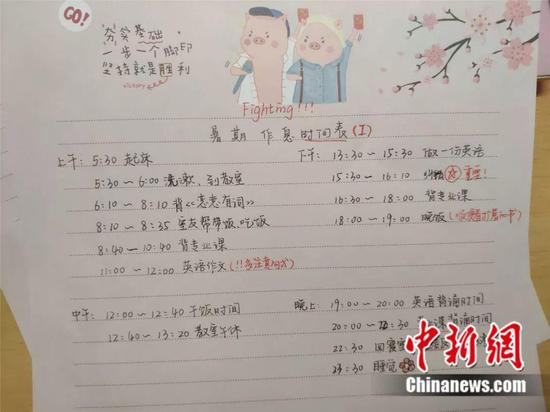 GO!
夯实基础
一步一个脚印
坚持就是胜利
victory
Fighting!!!
暑期作息时间表(I)
上午: 5:30 起床
5:30~6:00 洗漱、到教室
6:10~8:10 背《恋恋有词》
8:10~8:35 室友帮带饭、吃饭
8:40~10:40 背专业课
11:00~12:00 英语作文(!!多注意句式)
下午: 13:30~15:30 做一份英语
15:30~16:10 纠错 重星!
16:30~18:00 背专业课
18:00~19:00 晚饭
中午: 12:00~12:40 干饭时间
12:40~13:20 教室午休
晚上: 19:00~20:00 英语背诵时间
20:00~ :30 课背诵时间
22:30 回寝室
23:30 睡觉
中新网
Chinanews.com